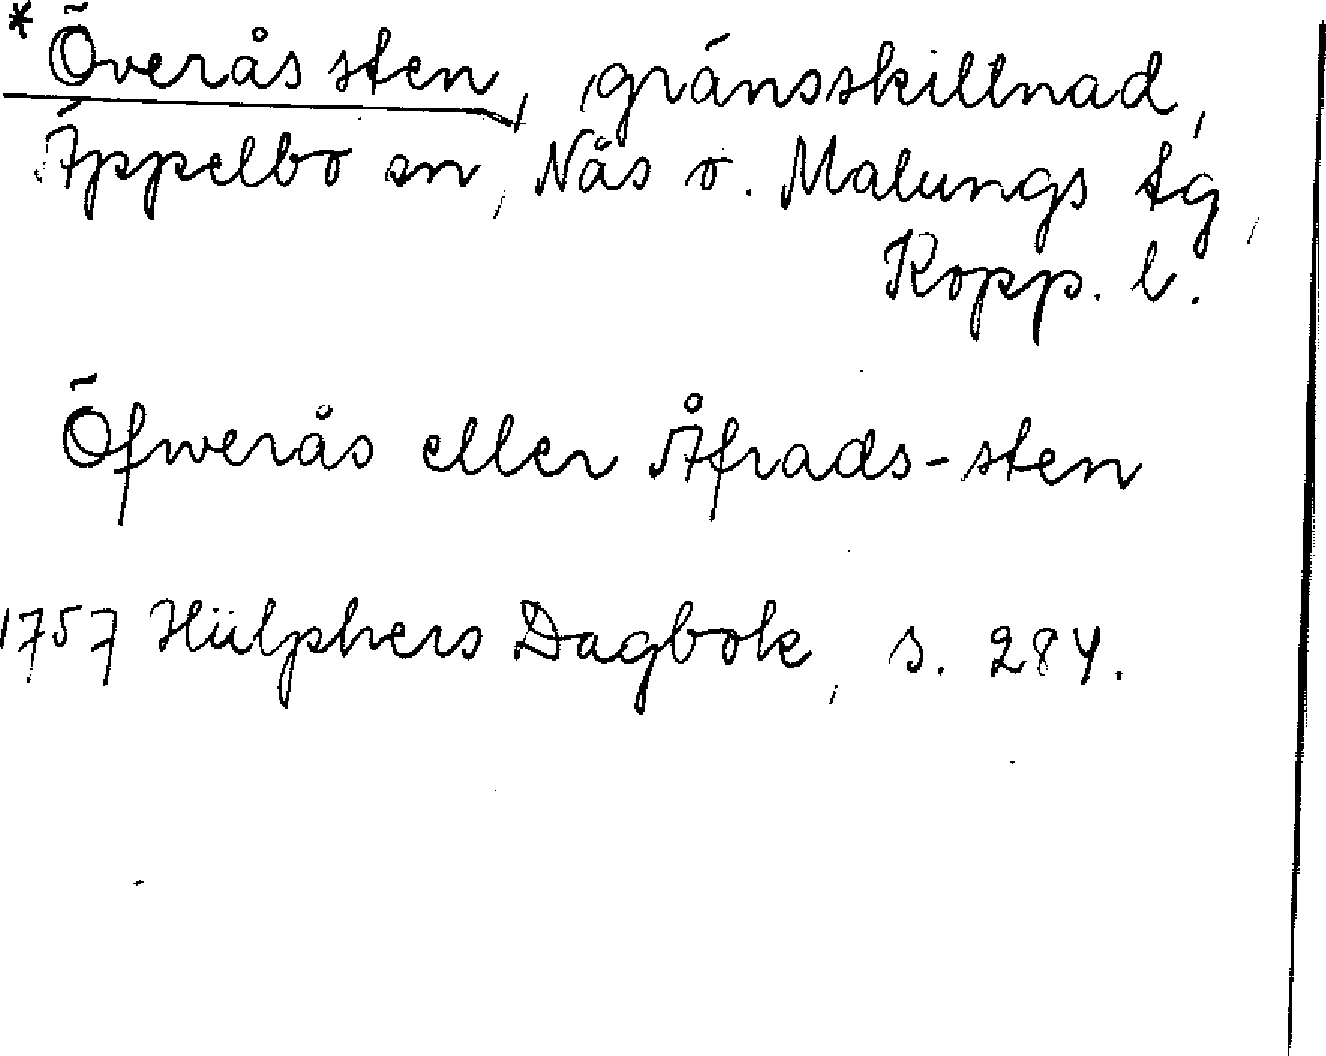 *Överåssten, gränsskillnad,
Äppelbo sn, Näs o. Malungs tg,
Kopp. l.
Öfwerås eller Åfrads-sten
1757 Hülphers Dagbok, s. 284.